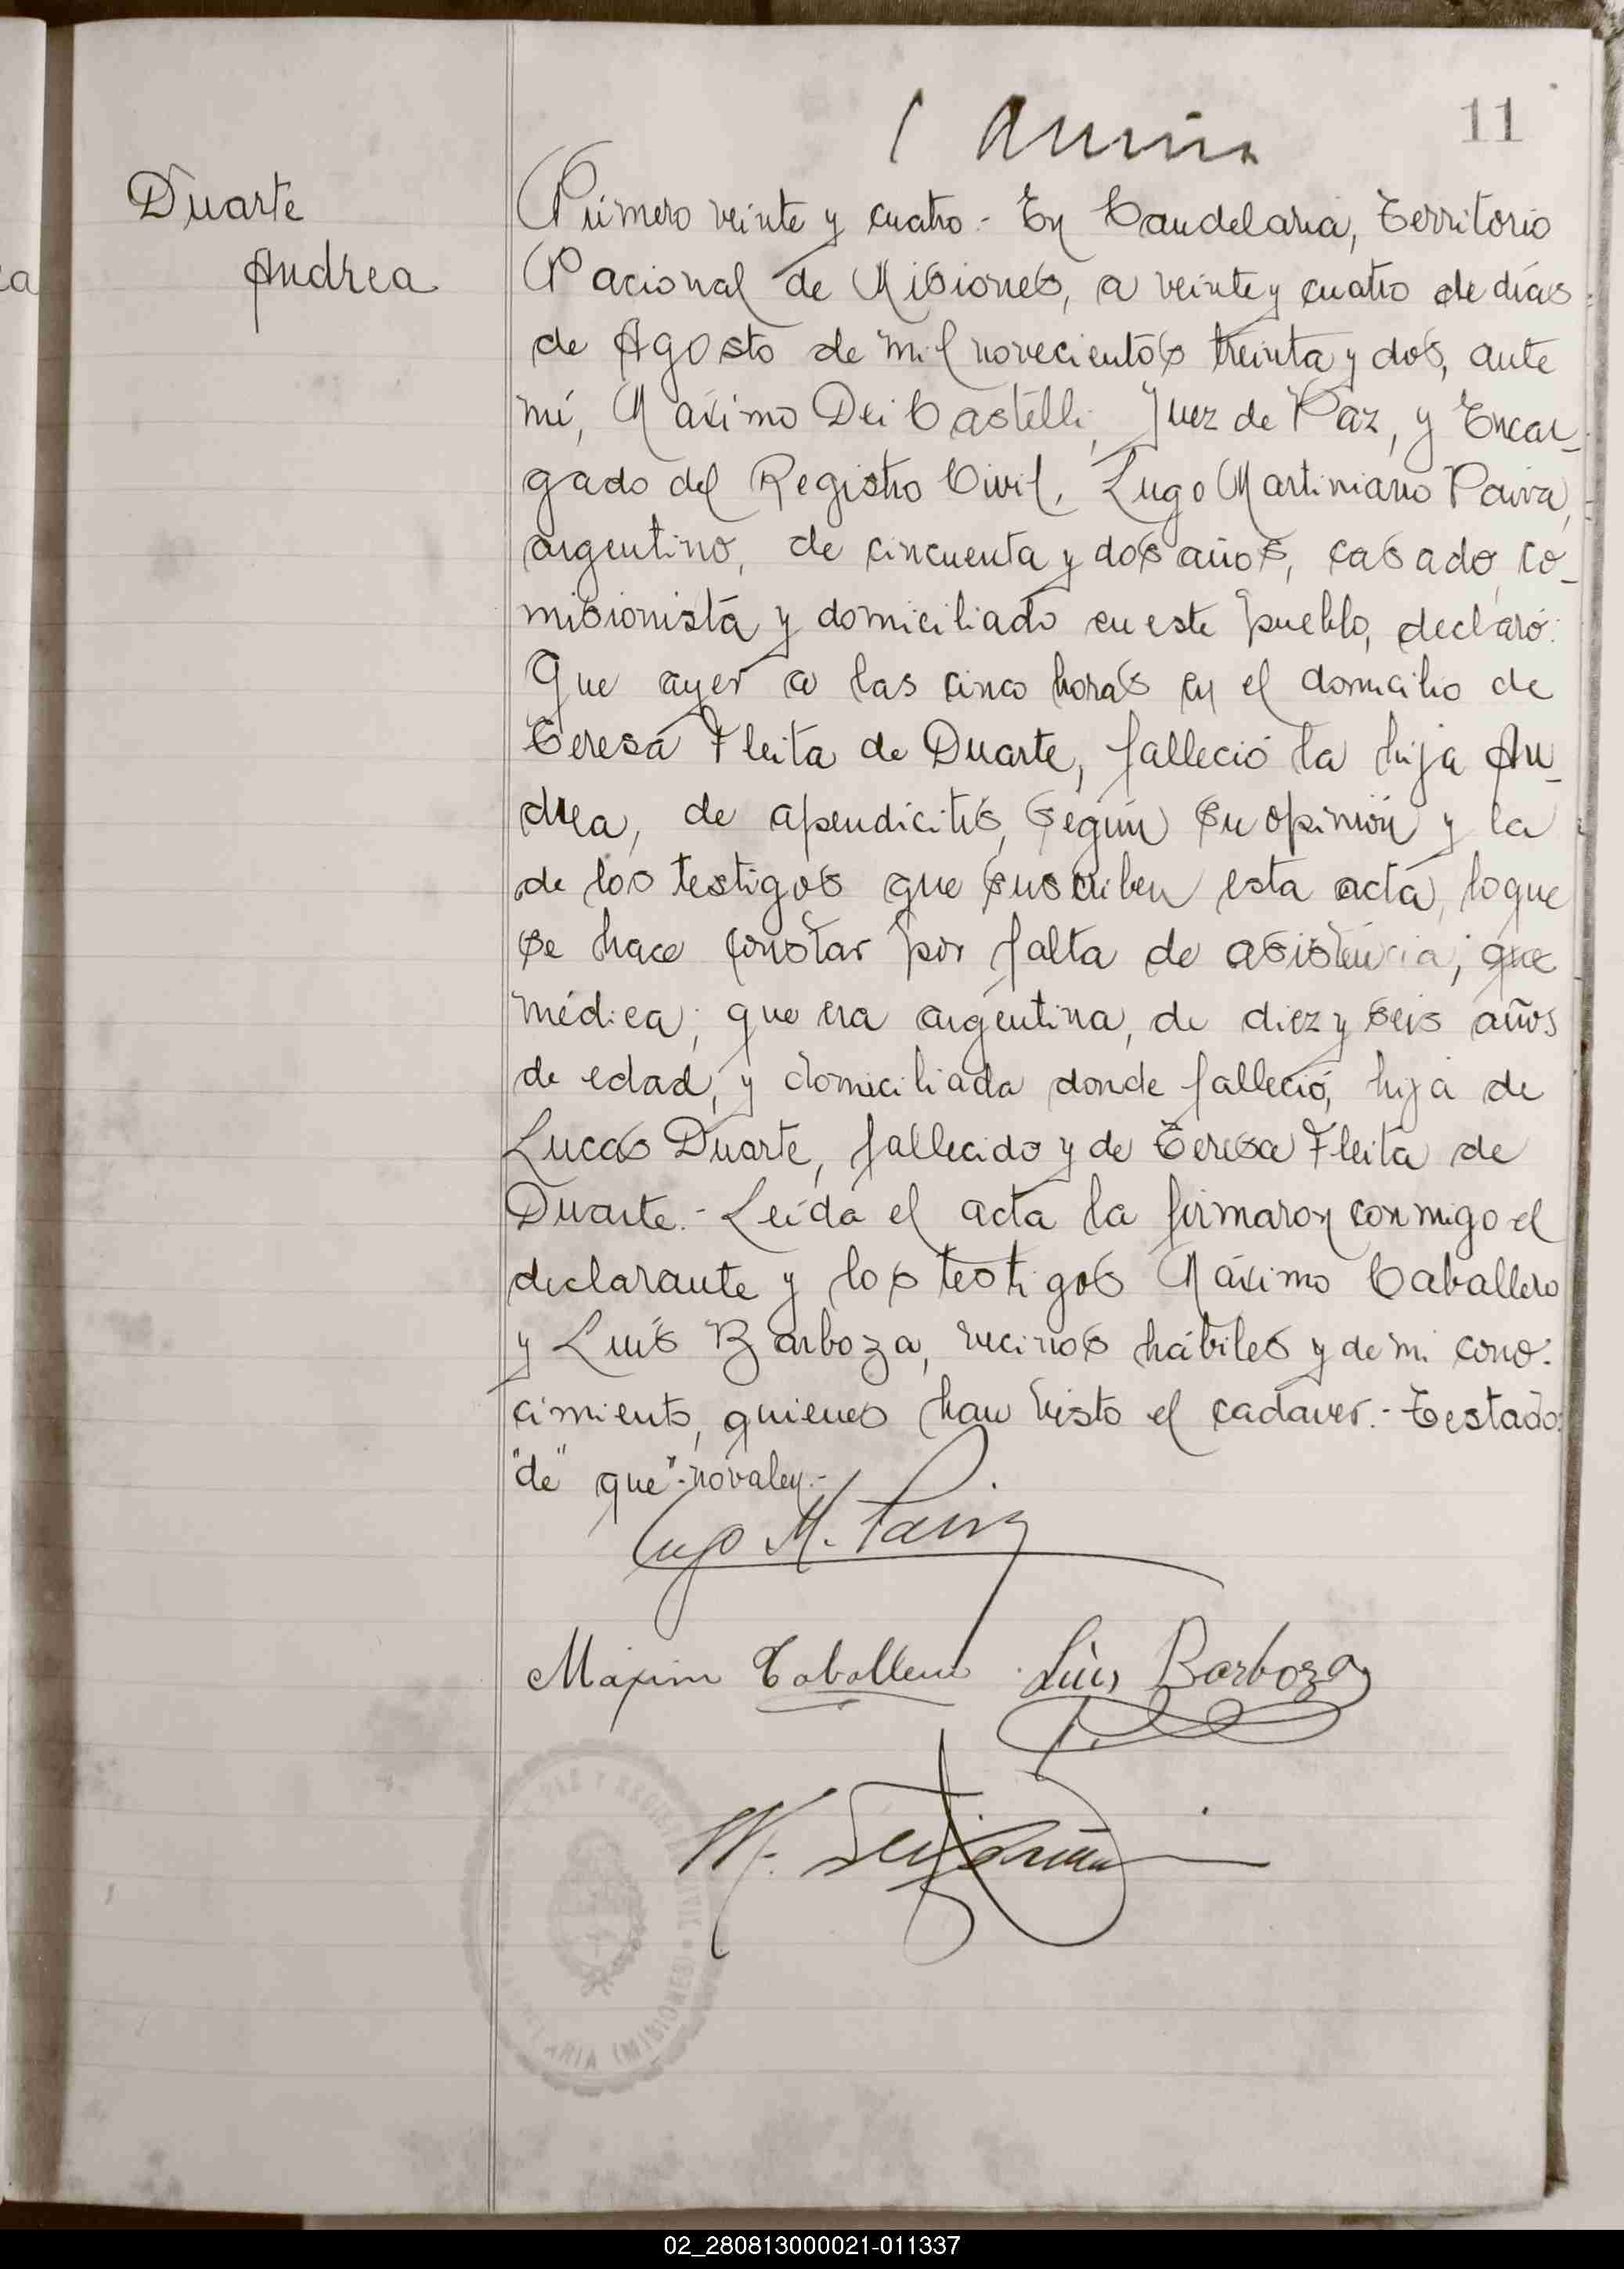 11
Duarte
Andrea
Número veinte y cuatro.- En Candelaria, Territorio
Nacional de Misiones, a veinte y cuatro de días
de Agosto de mil novecientos treinta y dos, ante
mí, Máximo Dei Castelli, Juez de Paz, y Encar-
gado del Registro Civil, Lugo Martiniano Paiva,
argentino, de cincuenta y dos años, casado, co-
misionista y domiciliado en este pueblo, declaró:
Que ayer a las cinco horas en el domicilio de
Teresa Fleita de Duarte, falleció la hija An-
drea, de apendicitis, según su opinión y la
de los testigos que suscriben esta acta, lo que
se hace constar por falta de asistencia; que
médica; que era argentina, de diez y seis años
de edad, y domiciliada donde falleció, hija de
Lucas Duarte, fallecido y de Teresa Fleita de
Duarte.- Leída el acta la firmaron conmigo el
declarante y los testigos Máximo Caballero
y Luis Barboza, vecinos hábiles y de mi cono-
cimiento, quienes han visto el cadaver.- Testado:
"de" que"-no valen.-
Lugo M. Paiva
Maximo Caballero Luis Barboza
PAZ Y REGISTRO CIVIL
CANDELARIA (MISIONES)
02_280813000021-011337